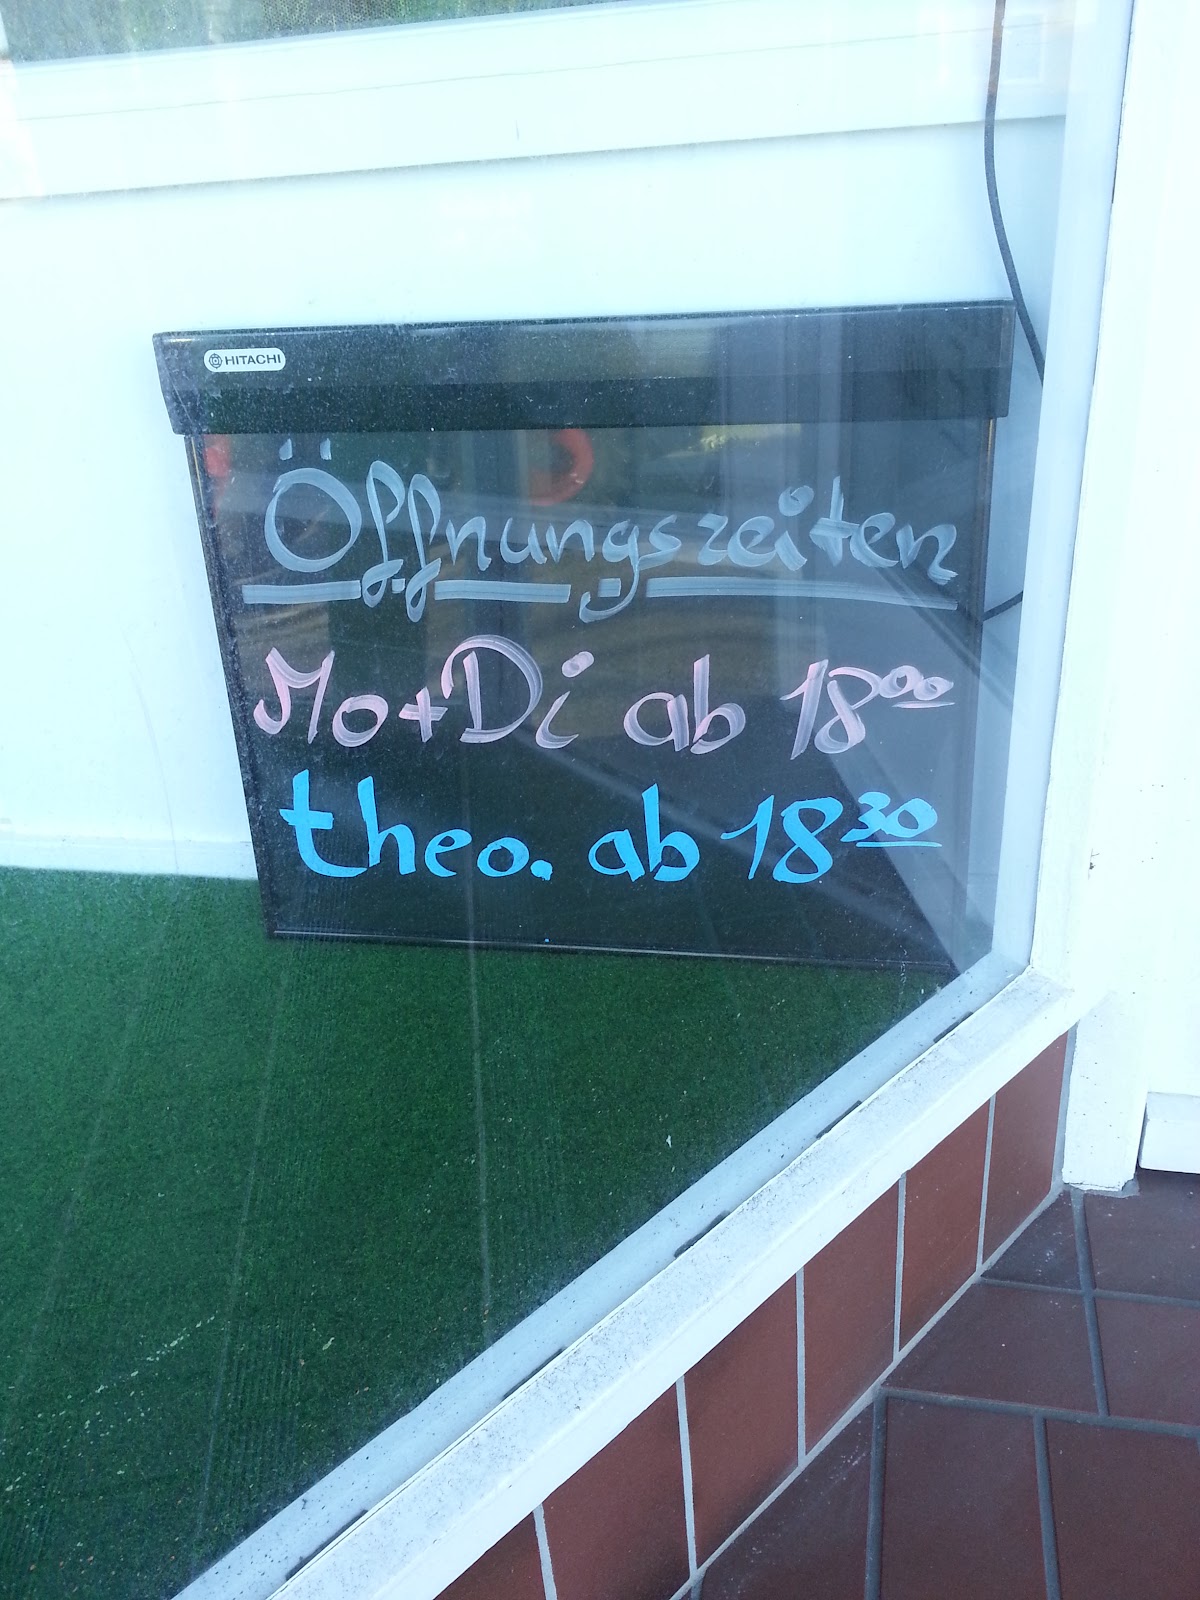 HITACHI
Öffnungszeiten
Mo+Di ab 18⁰⁰
theo. ab 18³⁰